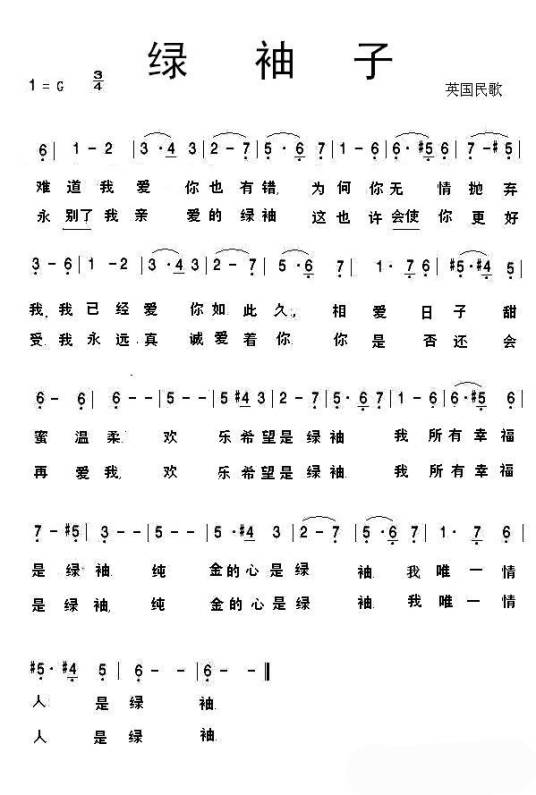 绿 袖 子
1=G 3/4
英国民歌
6 | 1 - 2 | 3 · 4 3 | 2 - 7 | 5 · 6 7 | 1 - 6 | 6 · #5 6 | 7 - #5 |
难道我爱 你也有错, 为何你无 情抛弃
永 别了我亲 爱的绿袖 这也许会使你更好
3 - 6 | 1 - 2 | 3 · 4 3 | 2 - 7 | 5 · 6 7 | 1 · 7 6 | #5 · #4 5 |
我,我已经爱 你如此久, 相爱日子甜
受.我永远真 诚爱着你. 你是否还会
6 - 6 | 6 - - | 5 - - | 5 #4 3 | 2 - 7 | 5 · 6 7 | 1 - 6 | 6 · #5 6 |
蜜温柔. 欢 乐希望是绿袖 我所有幸福
再爱我, 欢 乐希望是绿袖. 我所有幸福
7 - #5 | 3 - - | 5 - - | 5 · #4 3 | 2 - 7 | 5 · 6 7 | 1 · 7 6 |
是绿袖. 纯 金的心是绿 袖. 我唯一情
是绿袖, 纯 金的心是绿 袖. 我唯一情
#5 · #4 5 | 6 - - | 6 - - ‖
人 是绿 袖.
人 是绿 袖.